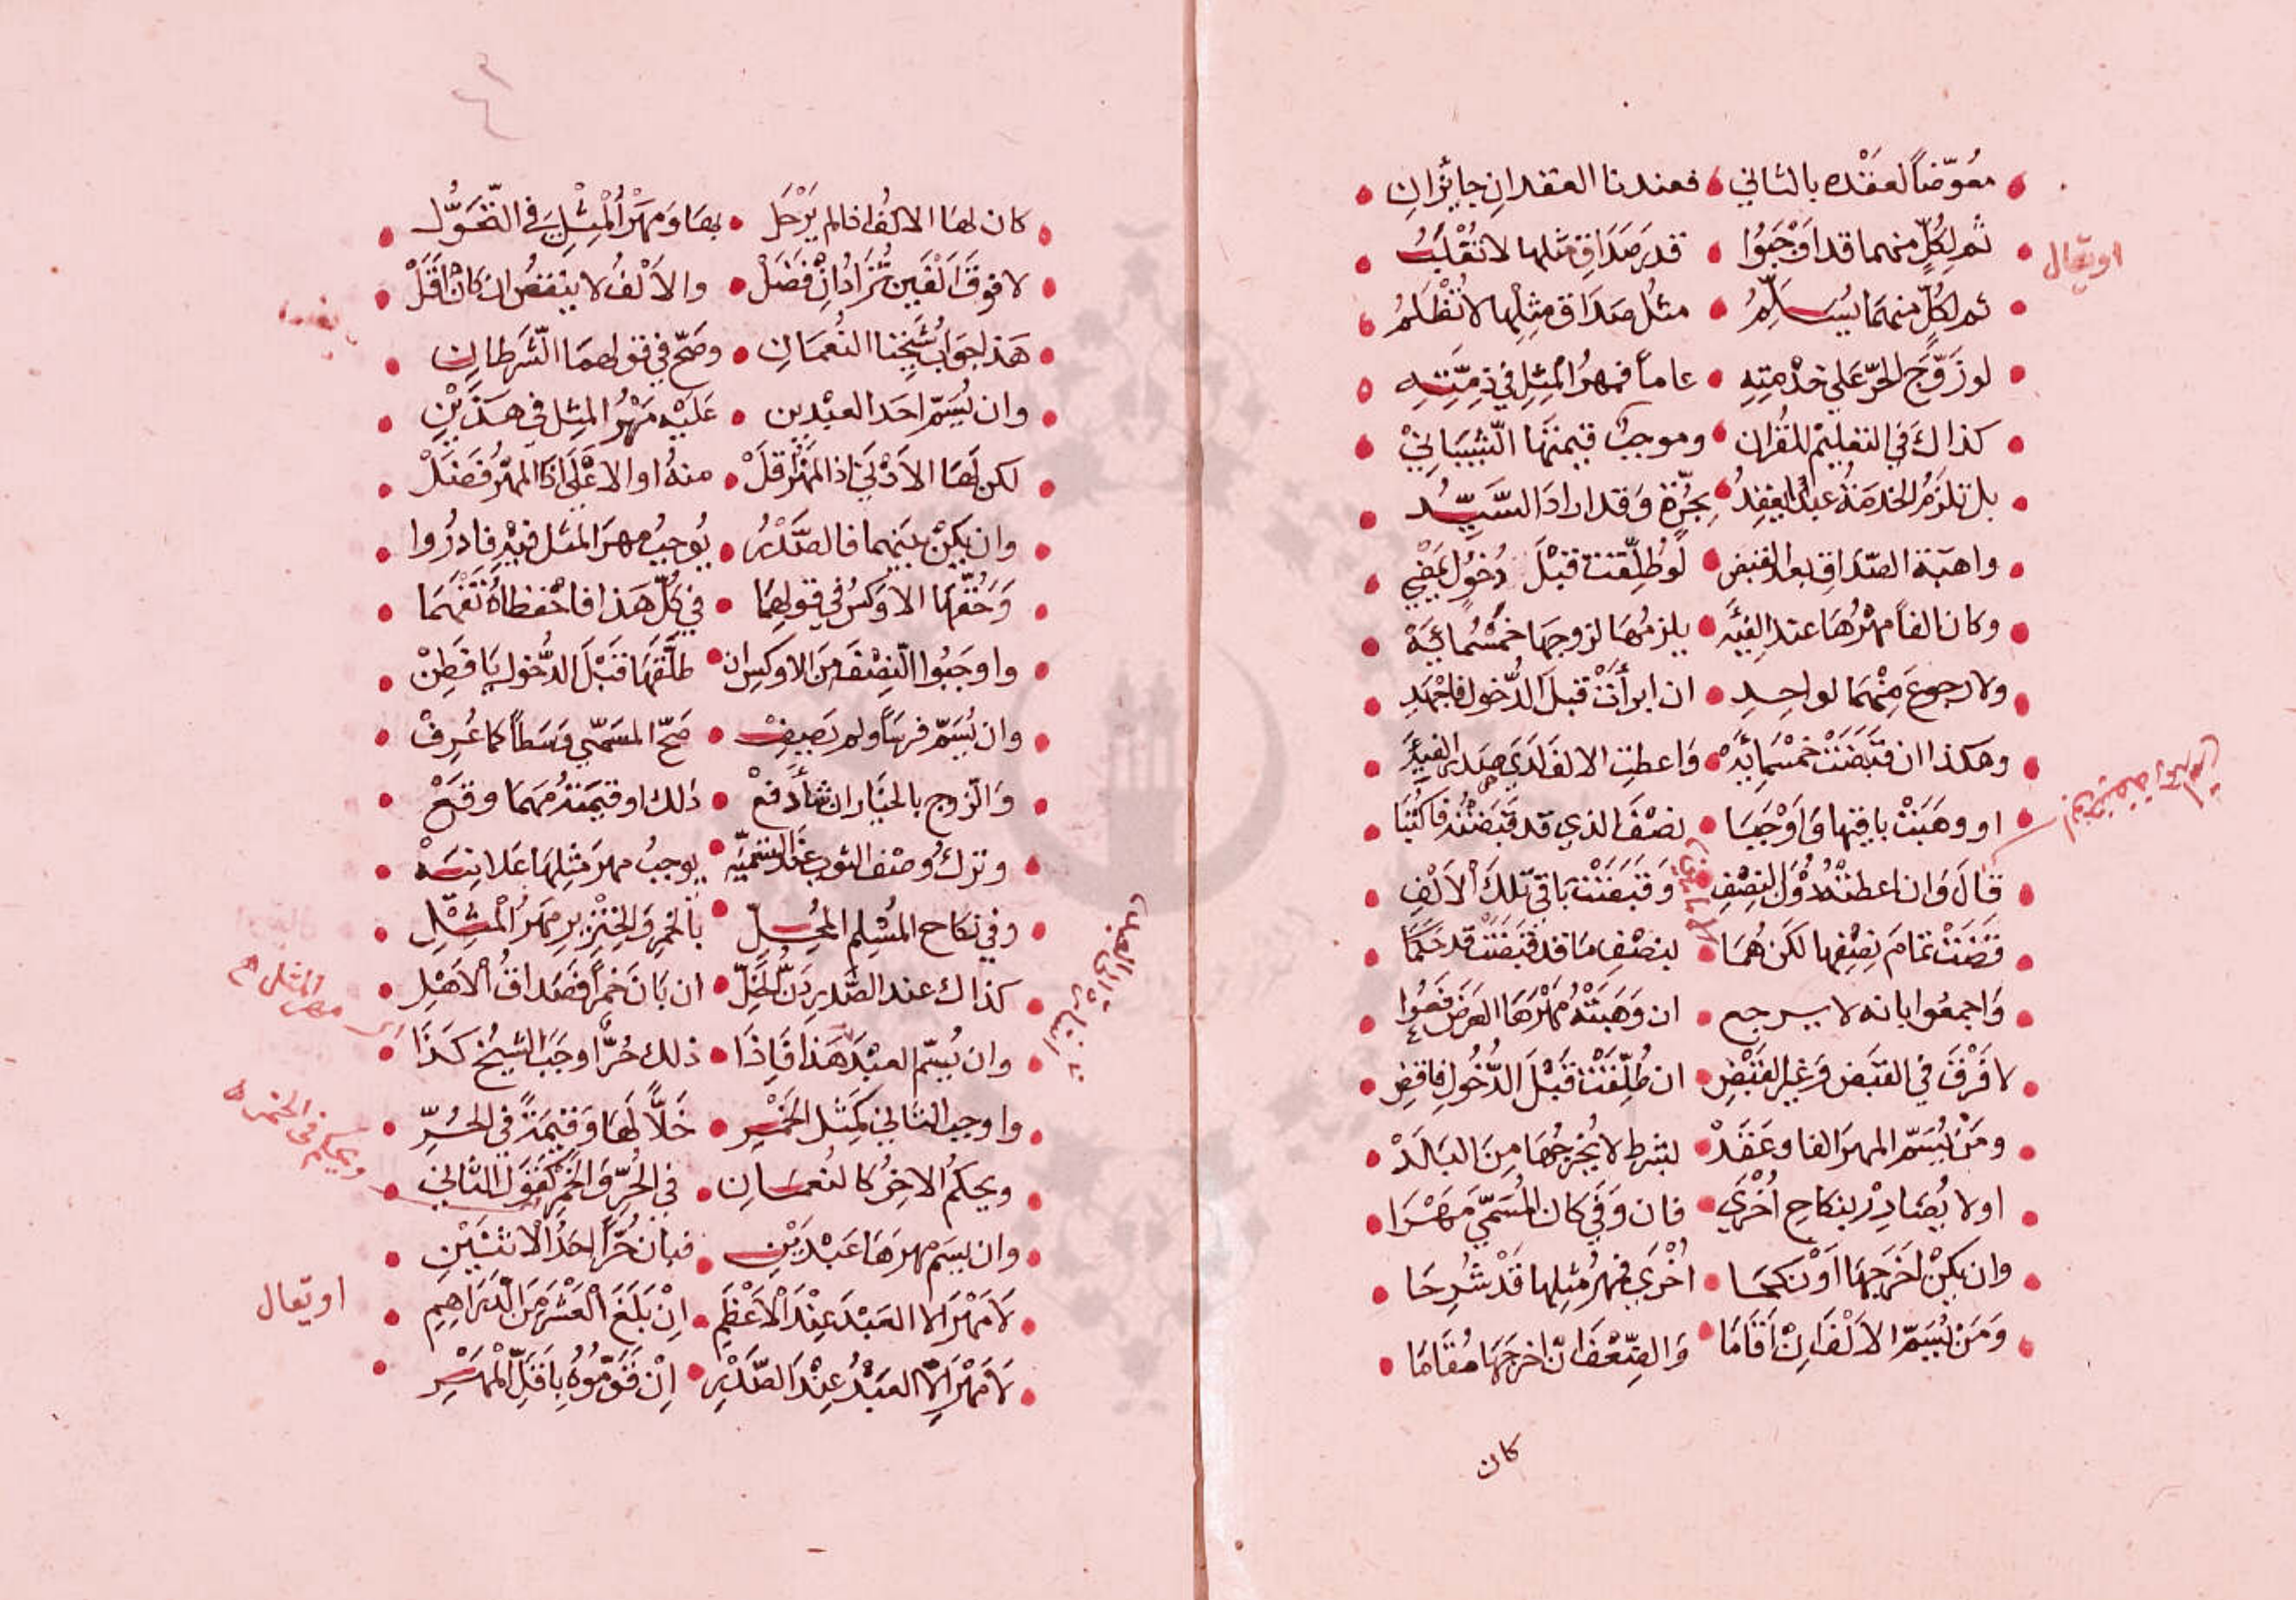 معوّضاً لعقده بالثاني • فعندنا العقدان جائزان
ثم لكلٍّ منهما قد اَوْجَبُوا • قدر صَدَاقِ مثلها لا تُقْلَبُ
او يقال
ثم لكلٍّ منهما يُسَلِّمُ • مثلُ صَدَاقِ مِثلِها لا تُظْلَمُ
لو زَوَّجَ الحرّ عَلي خدْمتِهِ • عاماً فمهرُ المِثلِ في ذِمّتِهِ
كذاكَ في التعليم للقُران • وموجبٌ قيمتَهَا الشّيبَانِيْ
بل تلزَمُ الخدمَةُ عبداً يعقِدُ • بِحُرّةٍ وَقد ارادَ السَّيِّدُ
واهبَة الصّدَاقِ بعد القبض • لَو طُلِّقت قبْلَ دُخولٍ يَمْضِي
وكان الفاً مهْرُهَا عند الفِيَهْ • يلزمُهَا لزوجهَا خمْسُمائِيَهْ
ولا رجوعَ مِنْهمَا لواحِدِ • ان ابرأتْ قبلَ الدُّخول فاجْهَدِ
وهكذا ان قبَضَتْ خمْسَمِائَيهْ • وَاعطتِ الالفَ لَدَي
او وهَبَتْ باقيَها وَاَوْجَبَا • نصْفَ الذي قد قبَضتْهُ فاكْتُبَا
قالَ وَان اعطتْهُ دُوْنَ النِصْفِ • وَقَبَضَتْ باقيَ تلكَ الاَلْفِ
قَضَتْ تمَامَ نِصْفِها لكنْ هُمَا • بنصْفِ مَا قد قبَضَتْ قد حَكَمَا
وَاجمعُوا بانه لا يرجع • ان وَهَبَتْهُ مَهْرَهَا العَرَضَ فَعُوا
لا فَرْقَ في القبَض وَغيرِ القَبْضِ • ان طُلِّقَتْ قَبْلَ الدُّخُولِ فاقضِ
ومَنْ يُسَمّ المهرَ الفا وعَقَدْ • بشرط لا يُخرجُهَا مِنَ البَلَدْ
او لا يُضَادِدْ بنكاحٍ اُخْرَي • فان وَفَي كان المُسَمّي مَهْرَا
وان يكنْ اخرَجهَا اَوْ نكحَا • اُخْرَي فمهرُ مثلِها قَدْ شُرِحَا
وَمَنْ يُسَمّ الاَلْفَ اِنْ اَقَامَا • وَالضِّعْفَ اَنْ اخرَجَهَا مُقَامَا
كان
كان لهَا الالفُ اذا لم يَرْحَل • بهَا وَمهْرُ الْمِثْلِ في التَّحَوُّل
لا فوقَ اَلفَينِ تُزَادُ اِنْ فَضَلْ • والاَلْفُ لا ينقصُ ان كانَ اَقَلْ
هَذا جوابُ شيخنا النُعمَانِ • وصَحّ في قولهمَا الشّرطانِ
وان يُسَمّ احَد العبْدين • عَلَيْه مَهْرُ المِثل في هذَيْنِ
لكن لَهَا الاَدْنَي اذ المَهْرُ قلْ • منهُ او الاَعْلَي اذا المَهْرُ فَضَلْ
وان يكنْ بينهما فالصَّدْرُ • يُوجبُ مهرَ المثل فيْهِ فادرُوا
وَحُقَّهَا الاَوكسُ في قولِهمَا • في كلِّ هَذا فاحْفظاهُ تَفْهَمَا
واوجَبُوا النِصْفَ مِنَ الاوكس ان • طلَّقَهَا قَبْلَ الدُّخول يَا فَطِنْ
وان يُسَمّ فرسَاً ولم يَصِفْ • صَحّ المسَمّي وَسَطاً كما عُرِفْ
وَالزوج بالخيَار ان شأ دفعْ • ذلك او قيمَتَهُ مهمَا وقعْ
وتركُ وصْف الثوب عند التسْمِيَه • يوجبُ مهرَ مثلِهَا عَلانِيَهْ
وفي نكاح المُسْلِم المُحِلِّ • بالخمْرِ وَالخِنْزِيرِ مهَرُ الْمِثْلِ
كذاك عند الصَّدرِ دَنُّ الخَلّ • ان بَانَ خَمراً فصَدَاقُ الاَهْلِ
مهر المثل
وان يُسَمّ العبْدَ هَذَا فَاِذَا • ذلك حُرٌّ اوجَبَ الشيخُ كَذَا
واوجب الثاني كَمِثْل الخَمْرِ • خَلاًّ لَهَا وَقيْمَةً في الحُرِّ
ويحكمُ الاخِرُ كالنُعمَانِ • في الحُرّ وَالخَمْرِ كقَوْل الثاني
وان يسَم مهرهَا عَبْدَيْنِ • فبان حُرّاً احَدُ الاثنَيْنِ
لاَ مَهْرَ الا العَبْدَ عِنْدَ الاَعْظَمِ • اِنْ بَلَغَ العَشْرَ مِنَ الدَّرَاهِمِ
او يقال
لاَ مَهْرَ اِلاّ العَبْدُ عِنْدَ الصّدْرِ • اِنْ قَوَّمُوْهُ بِاَقَلِّ الْمَهْرِ